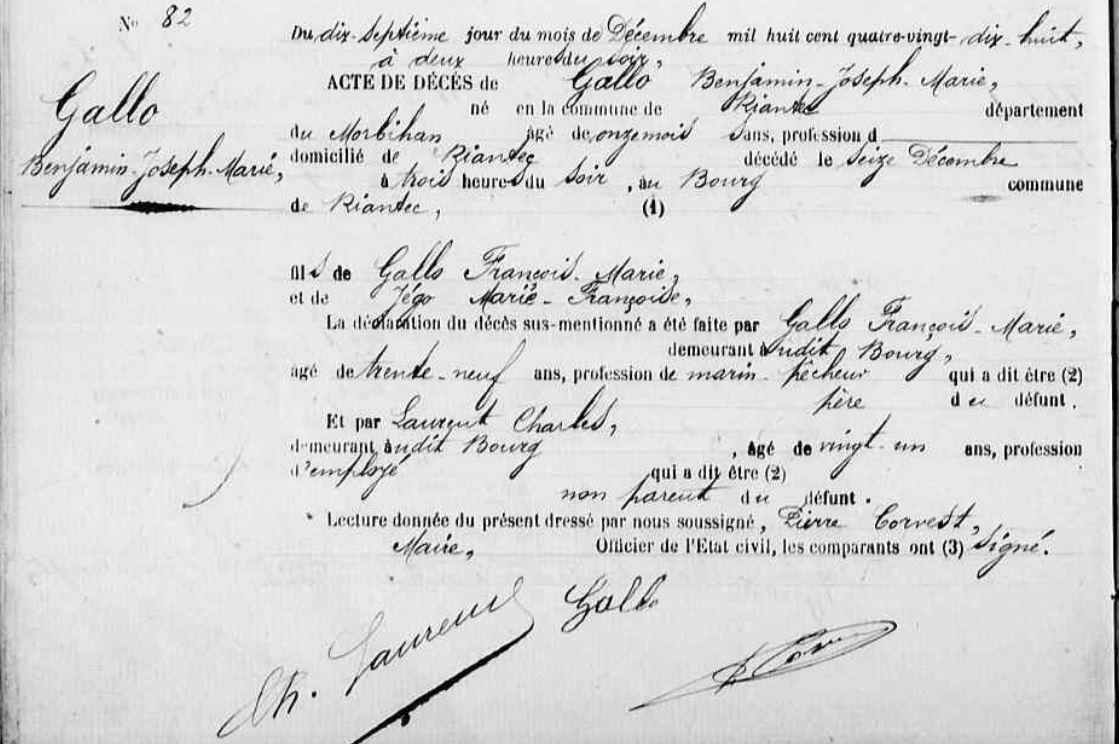 No 82
Du dix-septième jour du mois de Décembre mil huit cent quatre-vingt-dix-huit,
à deux heures du soir,
ACTE DE DÉCÈS de Gallo Benjamin-Joseph-Marie,
Gallo
né en la commune de Riantec département
du Morbihan âgé de onze mois ans, profession d
Benjamin-Joseph-Marie,
domicilié de Riantec décédé le seize Décembre
à trois heures du soir, au Bourg commune
de Riantec, (1)
fils de Gallo François-Marie,
et de Jégo Marie-Françoise,
La déclaration du décès sus-mentionné a été faite par Gallo François-Marie,
demeurant audit Bourg,
âgé de trente-neuf ans, profession de marin-pêcheur qui a dit être (2)
père du défunt.
Et par Laurent Charles,
demeurant audit Bourg, âgé de vingt-un ans, profession
d'employé qui a dit être (2)
non parent du défunt.
Lecture donnée du présent dressé par nous soussigné, Pierre Corvest,
Maire, Officier de l'Etat civil, les comparants ont (3) signé.
Ch. Laurent Gallo